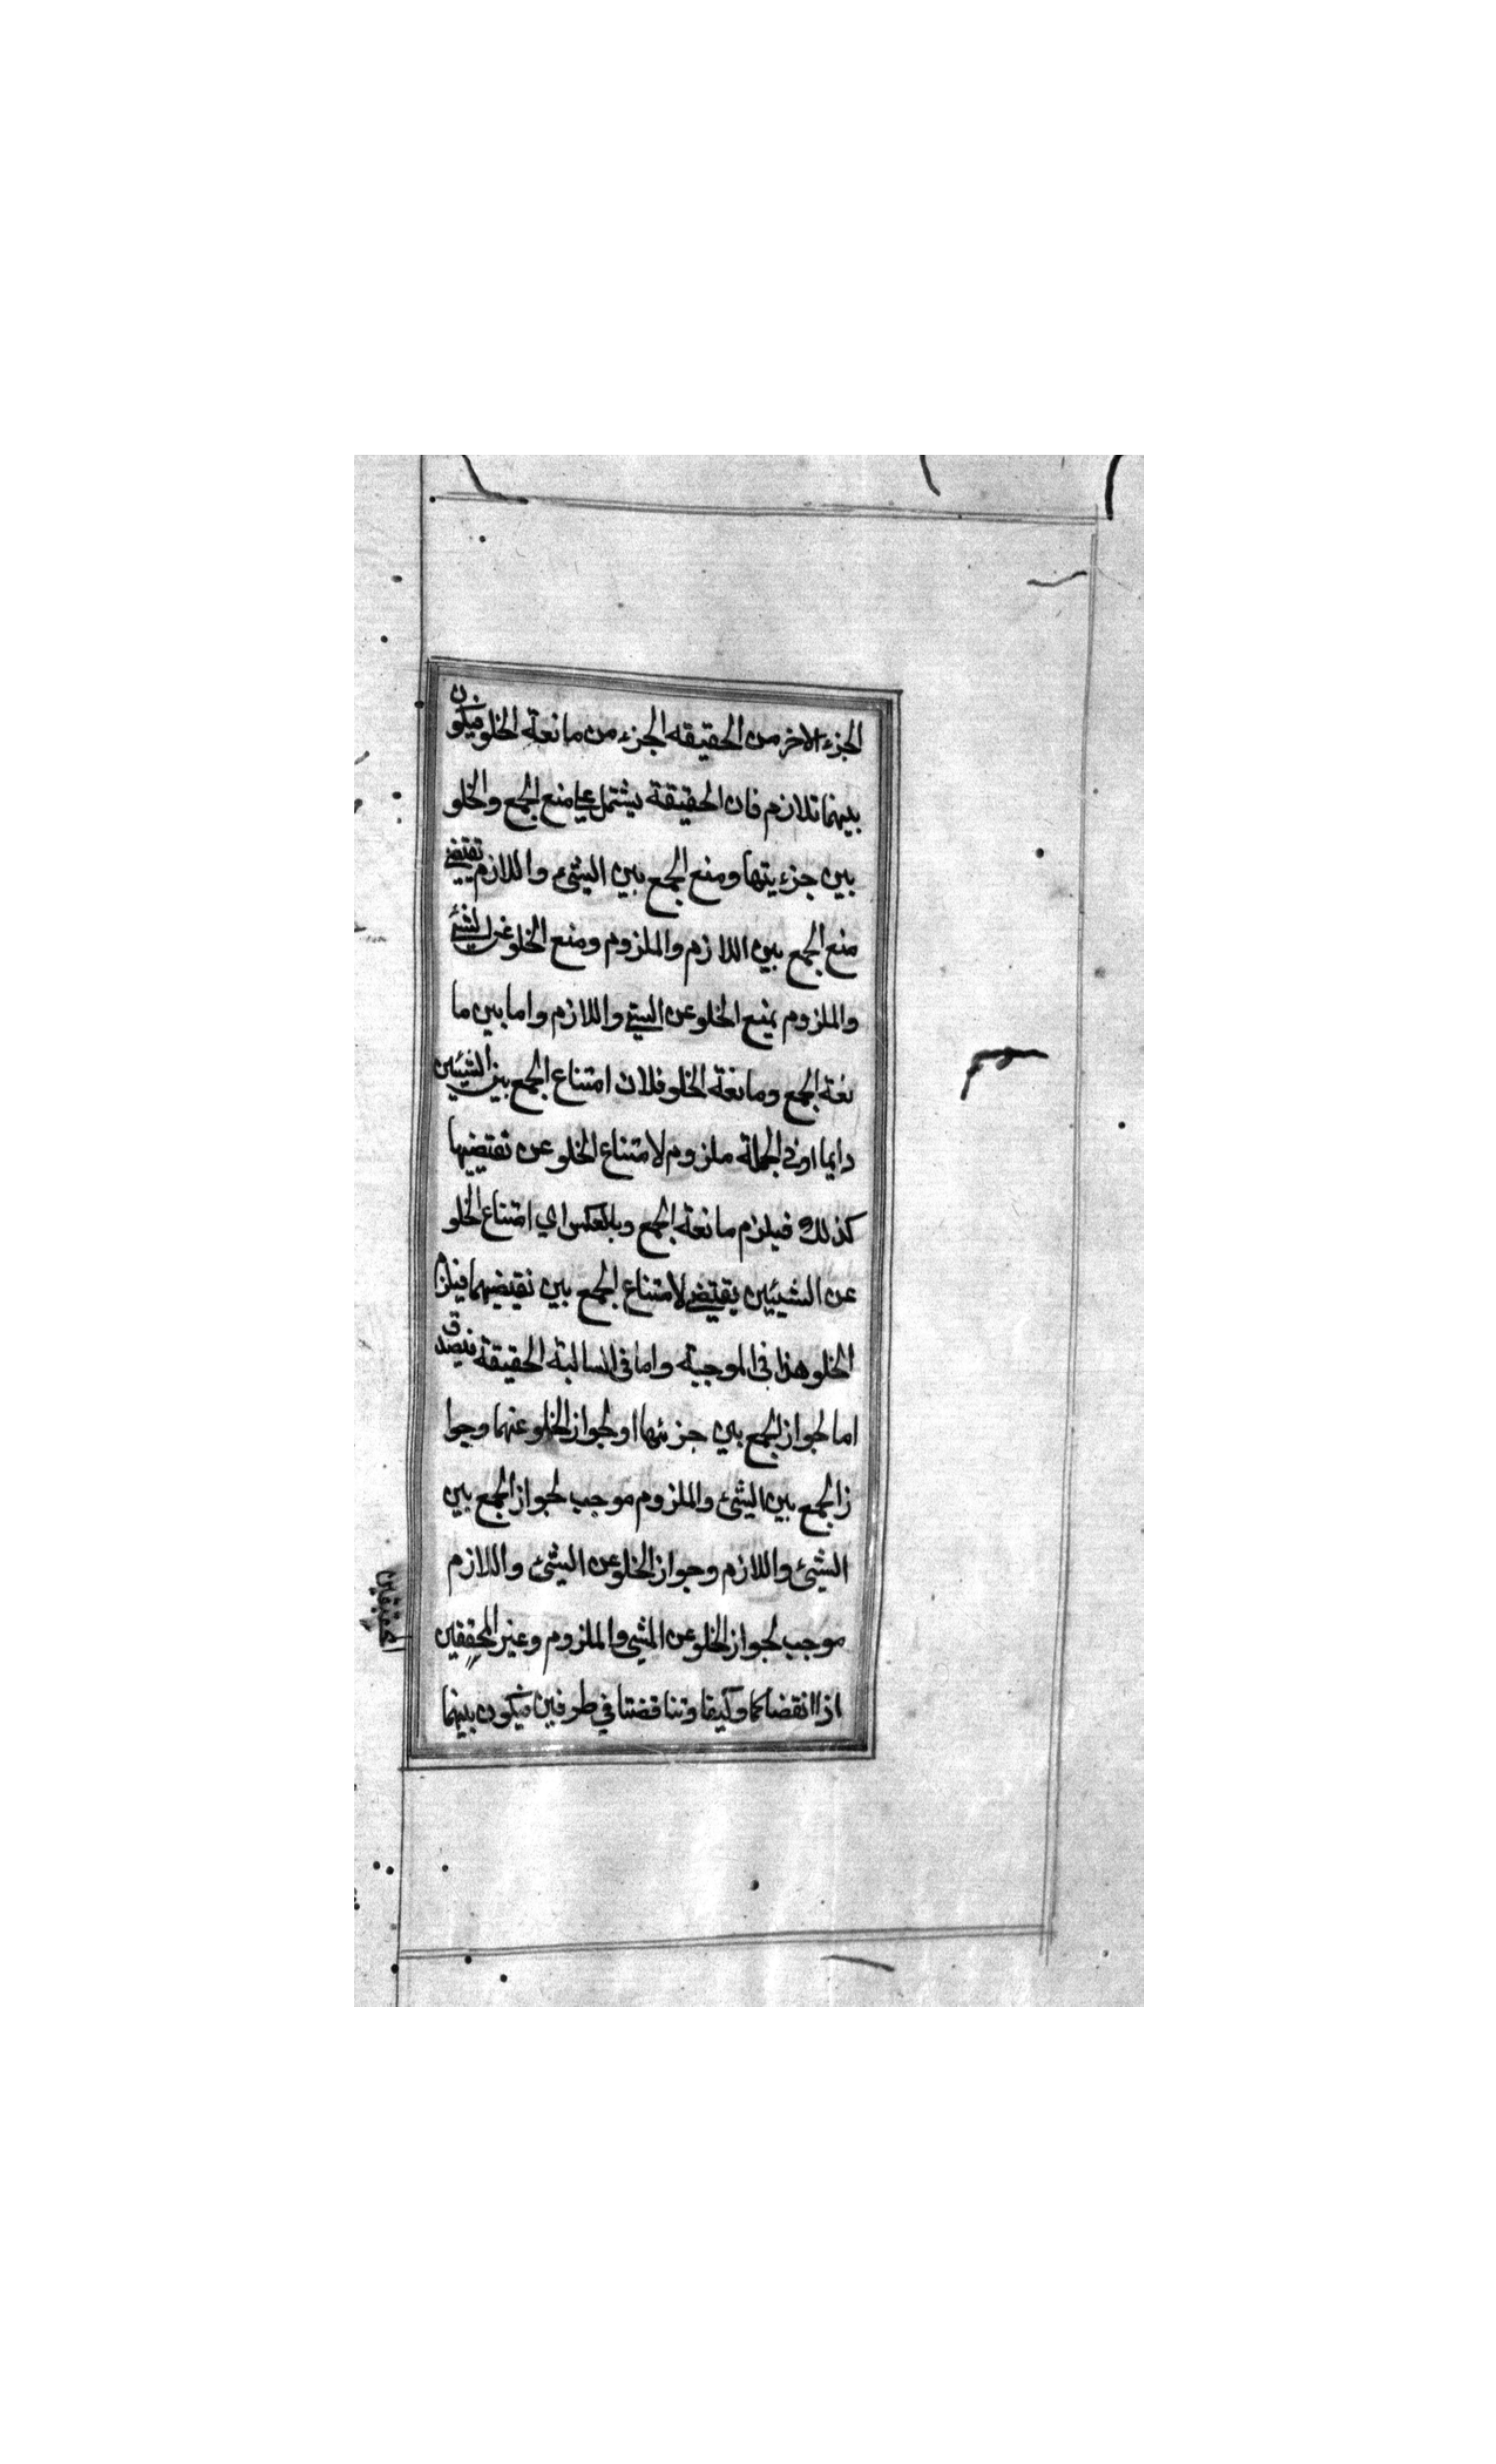 الجزء الاخر من الحقيقه الجزء من مانعة الخلو فيكون
بينهما تلازم فان الحقيقة يشتمل على منع الجمع والخلو
بين جزءيتها ومنع الجمع بين الشئ واللازم تقتضي
منع الجمع بين اللازم والملزوم ومنع الخلو عن الشئ
والملزوم يمنع الخلو عن الشئ واللازم واما بين ما
نعة الجمع ومانعة الخلو فلان امتناع الجمع بين الشيئين
دايما او في الجملة ملزوم لامتناع الخلو عن نقيضيها
كذلك فيلزم مانعة الجمع وبالعكس اي امتناع الخلو
عن الشيئين يقتضي لامتناع الجمع بين نقيضيهما فيلزم
الخلو هذا في الموجبة واما في السالبة الحقيقة فيصدق
اما لجواز الجمع بين جزئها او لجواز الخلو عنهما وجوا
ز الجمع بين الشئ والملزوم موجب لجواز الجمع بين
الشئ واللازم وجواز الخلو عن الشئ واللازم
موجب لجواز الخلو عن الشي والملزوم وغير المحققين
اذا انقضا كما وكيفا وتناقضتا في طرفين فيكون بينهما